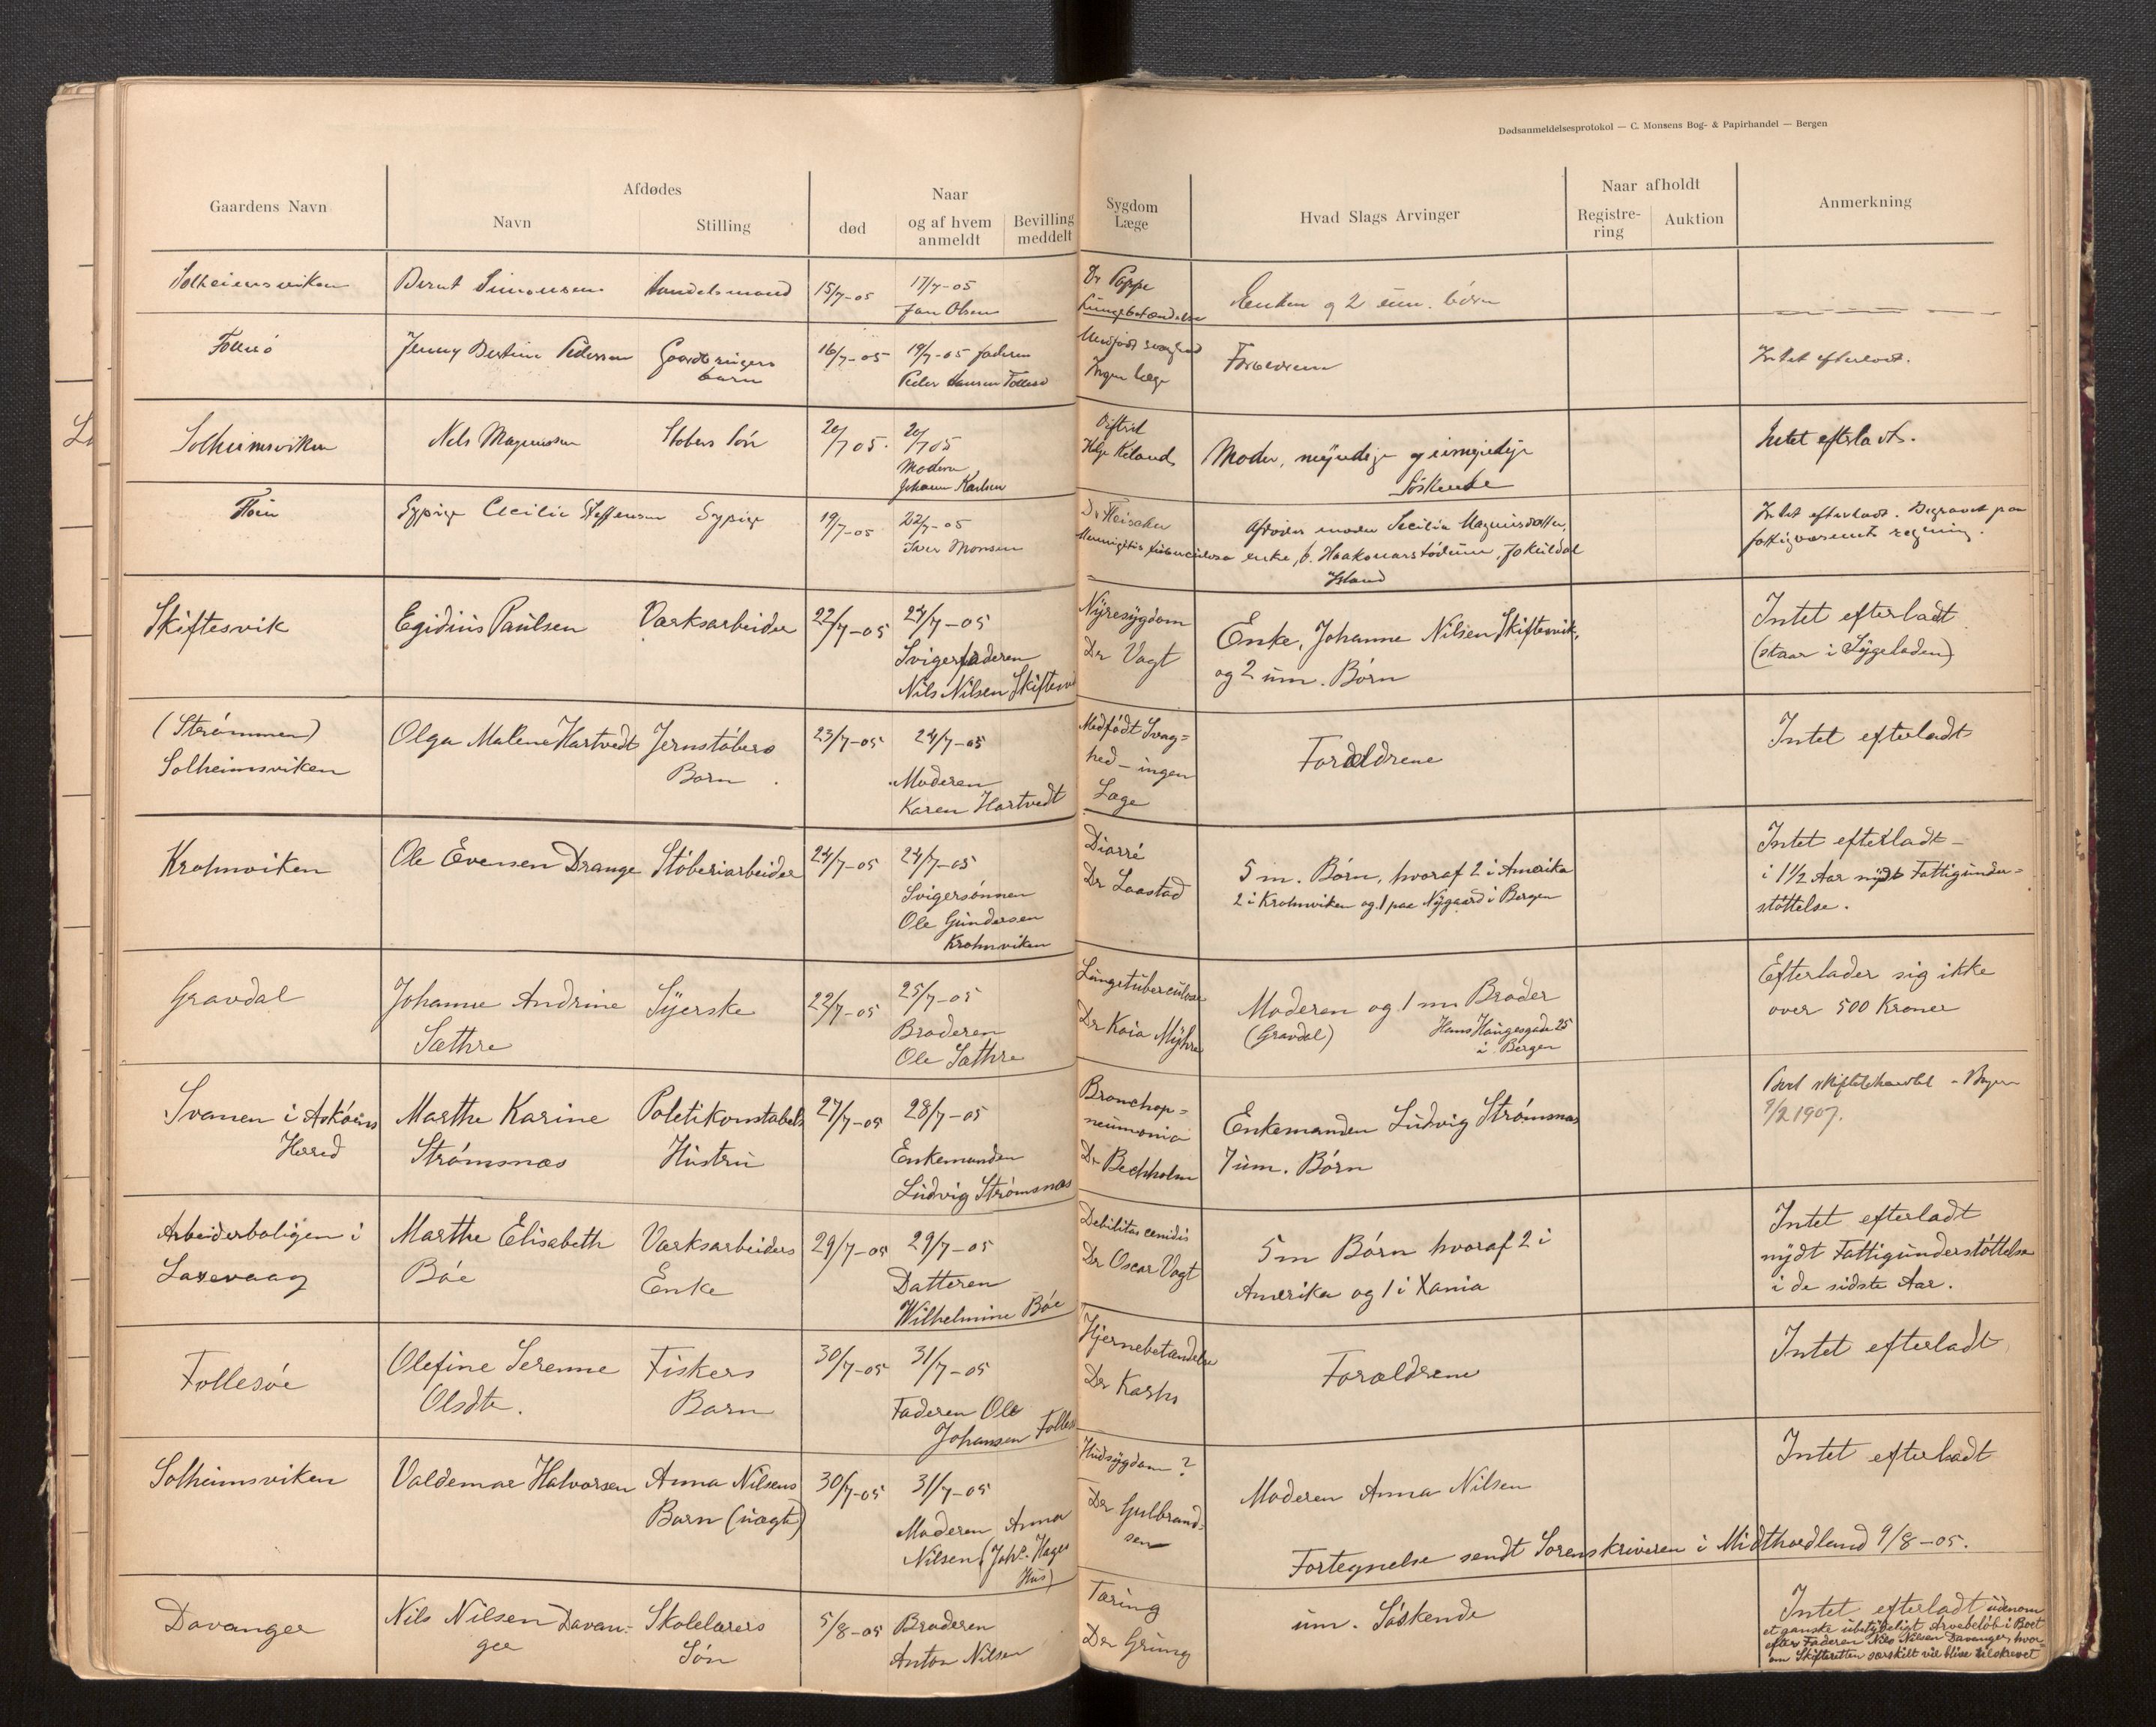 Dødsanmeldelsesprotokol — C. Monsens Bog- & Papirhandel — Bergen
Gaardens Navn
Afdødes
Navn
Stilling
død
Naar
og af hvem
anmeldt
Bevilling
meddelt
Sygdom
Læge
Hvad Slags Arvinger
Naar afholdt
Registre-
ring
Auktion
Anmerkning
Solheimsviken
Bernt Simonsen
Handelsmand
15/7-05
17/7-05
Jan Olsen
Dr Poppe
Lungebetændelse
Enken og 2 um. børn
Follesø
Jenny Bertine Pedersen
Gaardbrugers
barn
16/7-05
19/7-05 faderen
Peder Hansen Follesø
Medfødt svaghed
Ingen læge
Forældrene
Intet efterladt.
Solheimsviken
Nils Magnussen
Støbers Søn
20/7 05.
20/7 05
Moderen
Johanne Karlsen
Helje Keland
Moder, myndige og umyndige
Søskende
Intet efterladt.
Sypige Cecilie Steffensen
Sypige
19/7-05
22/7-05
Iver Monsen
Meningitis tuberculosa
Afdødes moder Secilia Magnusdatter,
enke, p. Haakonarstødum, Jøkuldal
Island
Intet efterladt. Begravet paa
fattigvæsenets regning.
Skiftesvik
Egidius Paulsen
Værksarbeider
22/7-05
24/7-05
Svigerfaderen
Nils Nilsen Skiftesvi
Nyresygdom
Dr Vagt
Enke, Johanne Nilsen Skiftesvik,
og 2 um. Børn
Intet efterladt
(staar i Sygeladen)
(Strømmen)
Solheimsviken
Olga Malene Hartvedt
Jernstøbers
Barn
23/7-05
24/7-05
Moderen
Karen Hartvedt
Medfødt Svag=
hed - ingen
Læge
Forældrene
Intet efterladt
Krohnviken
Ole Evensen Drange
Støberiarbeider
24/7-05
24/7-05
Svigersønnen
Ole Gundersen
Krohnviken
Diarré
Dr Laastad
5 m. Børn, hvoraf 2 i Amerika
2 i Krohnviken og 1 paa Nygaard i Bergen
Intet efterladt -
i 1½ Aar nydt Fattigunder=
støttelse.
Gravdal
Johanne Andrine
Sæthre
Syerske
22/7-05
25/7-05
Broderen
Ole Sæthre
Lungetuberculose
Dr Kaia Myhre
Moderen og 1 m Broder
(Gravdal)
Hans Haugesgade 25
i Bergen
Efterlader sig ikke
over 500 Kroner
Svanen i Askøens
Herred
Marthe Karine
Strømsnæs
Politikonstabels
Hustru
27/7-05
28/7-05
Enkemanden
Ludvig Strømsnæs
Bronchop=
neumonia
Dr Bechholm
Enkemanden Ludvig Strømsnæs
7 um. Børn
9/2 1907.
Arbeiderboligen i
Laxevaag
Marthe Elisabeth
Bøe
Værksarbeiders
Enke
29/7-05
29/7-05
Datteren
Wilhelmine Bøe
Debilitas cenidis
Dr Oscar Vagt
5 m Børn hvoraf 2 i
Amerika og 1 i Xania
Intet efterladt
nydt Fattigunderstøttelse
i de sidste Aar.
Follesøe
Olefine Serenne
Olsdtr.
Fiskers
Barn
30/7-05
31/7-05
Faderen Ole
Johansen Folles
Hjernebetændelse
Dr Karhs
Forældrene
Intet efterladt
Solheimsviken
Valdemar Halvorsen
Anna Nilsens
Barn (uægte)
30/7-05
31/7-05
Moderen Anna
Nilsen (Johs. Hages
Hus)
Hudsygdom?
Dr Gulbrand=
sen
Moderen Anna Nilsen
Intet efterladt
Fortegnelse sendt Sorenskriveren i Midthordland 9/8-05.
Davanger
Nils Nilsen Davan-
ger
Skolelærers
Søn
5/8-05
Broderen
Anton Nilsen
Tæring
Dr Grung
um. Søskende
Intet efterladt udenom
et ganske ubetydeligt Arvebeløb i Boet
efter Faderen Nils Nilsen Davanger, hvor-
om Skifteretten særskilt vil blive tilskrevet